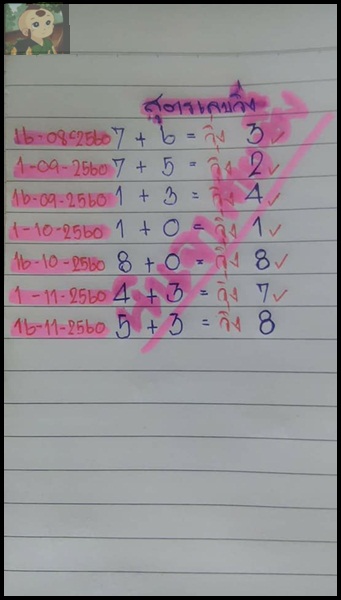 สูตรเลขวิ่ง
16-08-2560 7 + 6 = วิ่ง 3 ✓
1-09-2560 7 + 5 = วิ่ง 2 ✓
16-09-2560 1 + 3 = วิ่ง 4 ✓
1-10-2560 1 + 0 = วิ่ง 1 ✓
16-10-2560 8 + 0 = วิ่ง 8 ✓
1-11-2560 4 + 3 = วิ่ง 7 ✓
16-11-2560 5 + 3 = วิ่ง 8